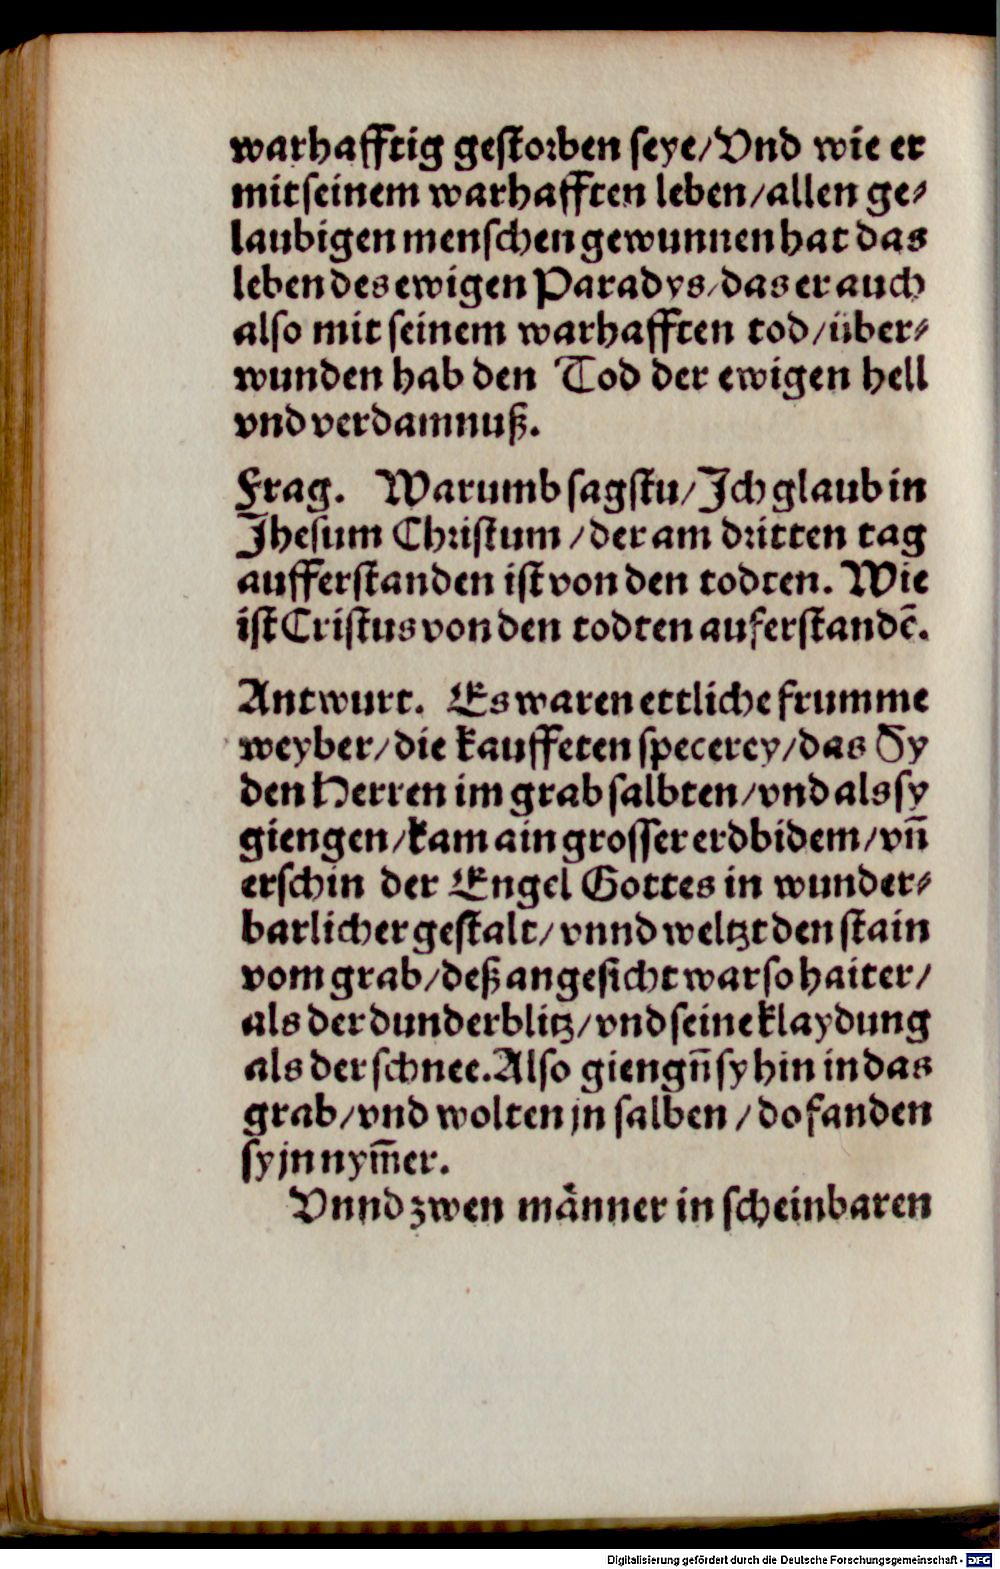 warhafftig gestorben seye/Vnd wie er
mit seinem warhafften leben/allen ge⸗
laubigen menschen gewunnen hat das
leben des ewigen Paradys/das er auch
also mit seinem warhafften tod/über⸗
wunden hab den Tod der ewigen hell
vnd verdamnuß.
Frag. Warumb sagstu/Ich glaub in
Jhesum Christum/der am dritten tag
aufferstanden ist von den todten. Wie
ist Cristus von den todten auferstandē.
Antwurt. Es waren ettliche frumme
weyber/die kauffeten specerey/das Sy
den Herren im grab salbten/vnd als sy
giengen/kam ain grosser erdbidem/vn̄
erschin der Engel Gottes in wunder⸗
barlicher gestalt/vnnd weltzt den stain
vom grab/deß angesicht war so haiter/
als der dunderblitz/vnd seine klaydung
als der schnee. Also giengn̄ sy hin in das
grab/vnd wolten jn salben/do fanden
sy jn nym̄er.
Vnnd zwen männer in scheinbaren
Digitalisierung gefördert durch die Deutsche Forschungsgemeinschaft - DFG